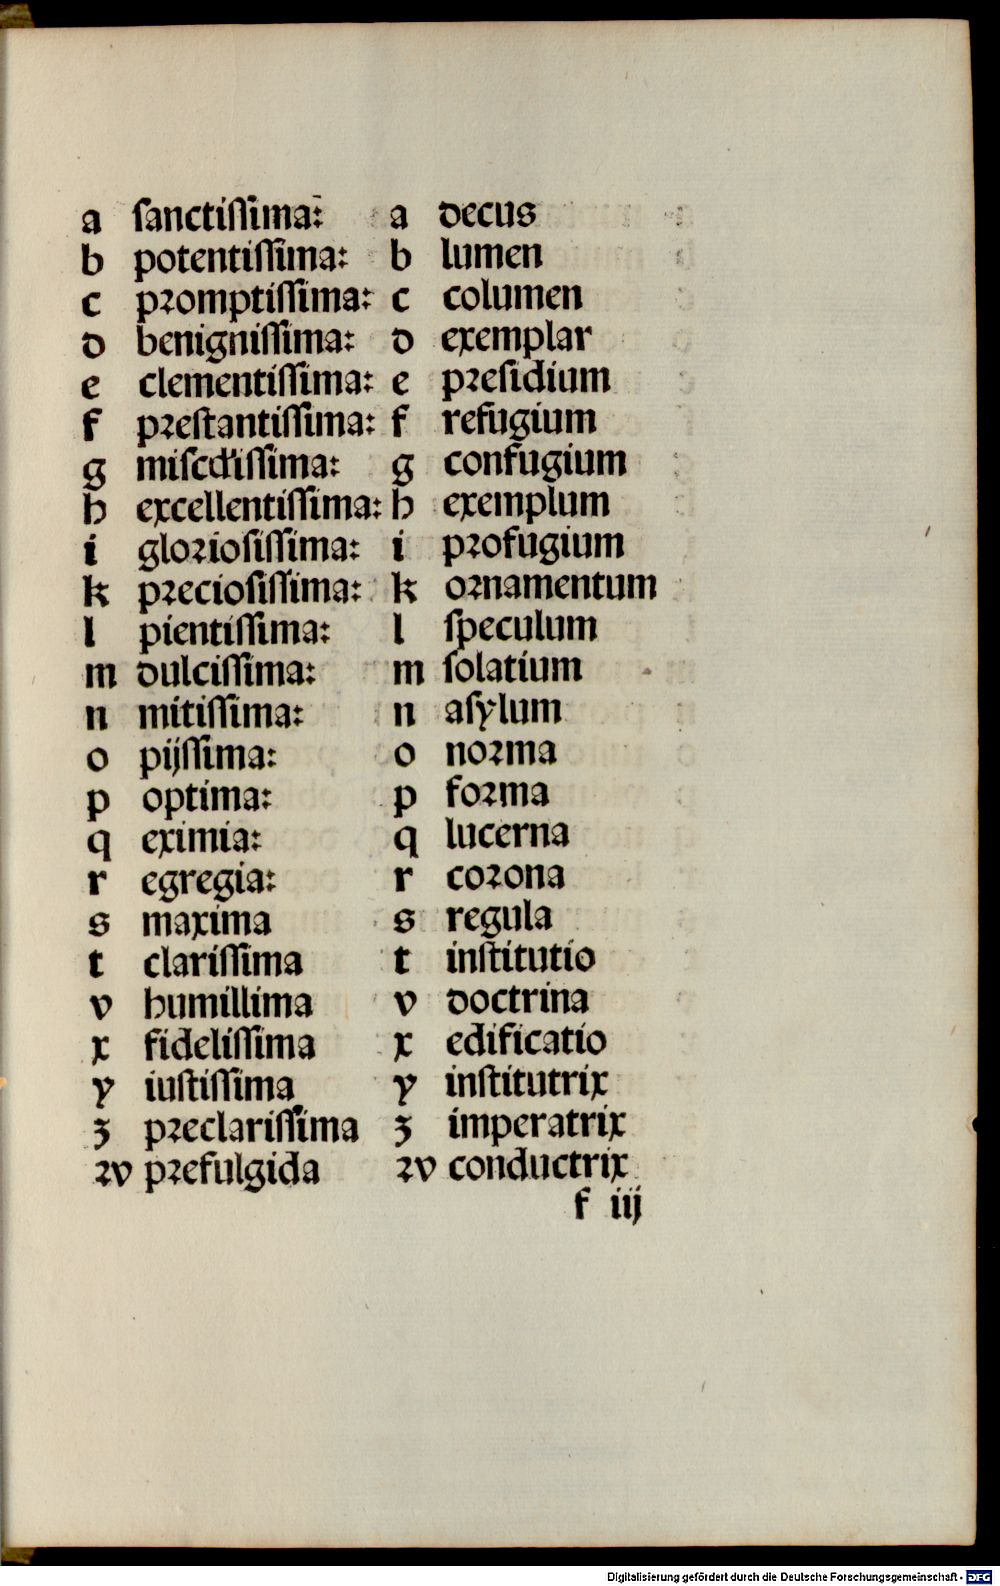 a ſanctiſſima: a decus
b potentiſſima: b lumen
c promptiſſima: c columen
d benigniſſima: d exemplar
e clementiſſima: e preſidium
f preſtantiſſima: f refugium
g confugium
h excellentiſſima: h exemplum
i glorioſiſſima: i profugium
k precioſiſſima: k ornamentum
l pientiſſima: l ſpeculum
m dulciſſima: m ſolatium
n mitiſſima: n aſylum
o pijſſima: o norma
p optima: p forma
q eximia: q lucerna
r egregia: r corona
s maxima s regula
t clariſſima t inſtitutio
v humillima v doctrina
x fideliſſima x edificatio
y iuſtiſſima y inſtitutrix
z preclariſſima z imperatrix
ꝛv prefulgida ꝛv conductrix
f iij
Digitalisierung gefördert durch die Deutsche Forschungsgemeinschaft - DFG